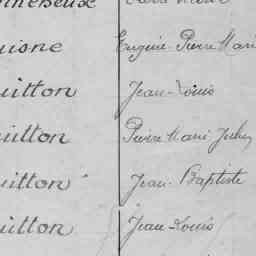 uisne Eugène Pierre Mari
uitton Jean-Louis
uitton Pierre Marie Julien
uitton Jean-Baptiste
uitton Jean-Louis